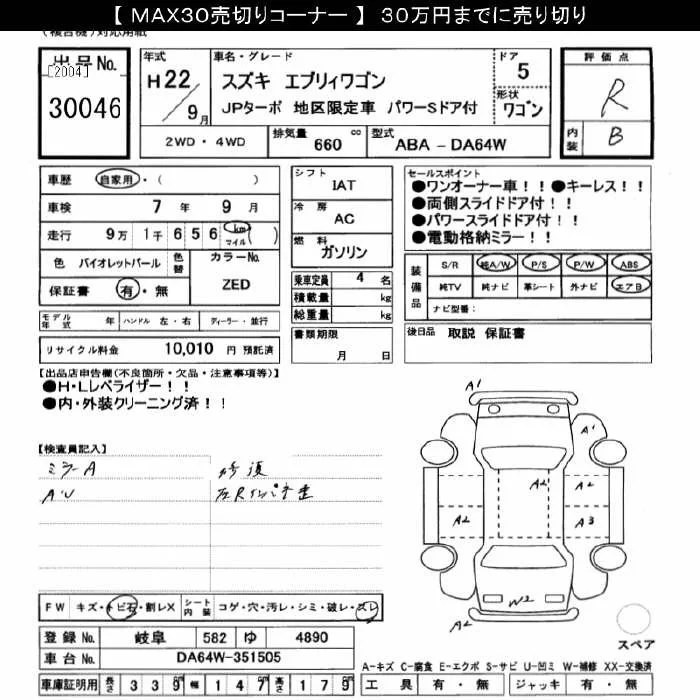 【 MAX30売切りコーナー 】 30万円までに売り切り
(複合機)対応用紙
出品No.
[2004]
30046
年式
H22/9月
車名・グレード
スズキ エブリィワゴン
JPターボ 地区限定車 パワーSドア付
ドア
5
形状
ワゴン
評価点
R
内装
B
2WD・4WD
排気量 660 cc
型式 ABA-DA64W
車歴 自家用・( )
車検 7年 9月
走行 9万 1千 6 5 6 km マイル ( )
色 バイオレットパール 色替
カラーNo.
ZED
保証書 有・無
モデル年式 年 ハンドル 左・右 ディーラー・並行
リサイクル料金 10,010 円 預託済
シフト
IAT
冷房
AC
燃料
ガソリン
乗車定員 4 名
積載量 kg
総重量 kg
書類期限
月 日
セールスポイント
●ワンオーナー車!!●キーレス!!
●両側スライドドア付!!
●パワースライドドア付!!
●電動格納ミラー!!
装備品
S/R 純A/W P/S P/W ABS
純TV 純ナビ 革シート 外ナビ エアB
ナビ型番:
後日品 取説 保証書
【出品店申告欄(不良箇所・欠品・注意事項等)】
●H・Lレベライザー!!
●内・外装クリーニング済!!
【検査員記入】
ミラーA 修復
AU 左Rインパネ歪
A1
A1
A2 A2
A2 A3
W2
A2
FW キズ・トビ石・割レX シート内装 コゲ・穴・汚レ・シミ・破レ・スレ
スペア
登録No. 岐阜 582 ゆ 4890
車台No. DA64W-351505
A-キズ C-腐食 E-エクボ S-サビ U-凹ミ W-補修 XX-交換済
車庫証明用 長さ 339 cm 幅 147 cm 高さ 179 cm
工具 有・無 ジャッキ 有・無